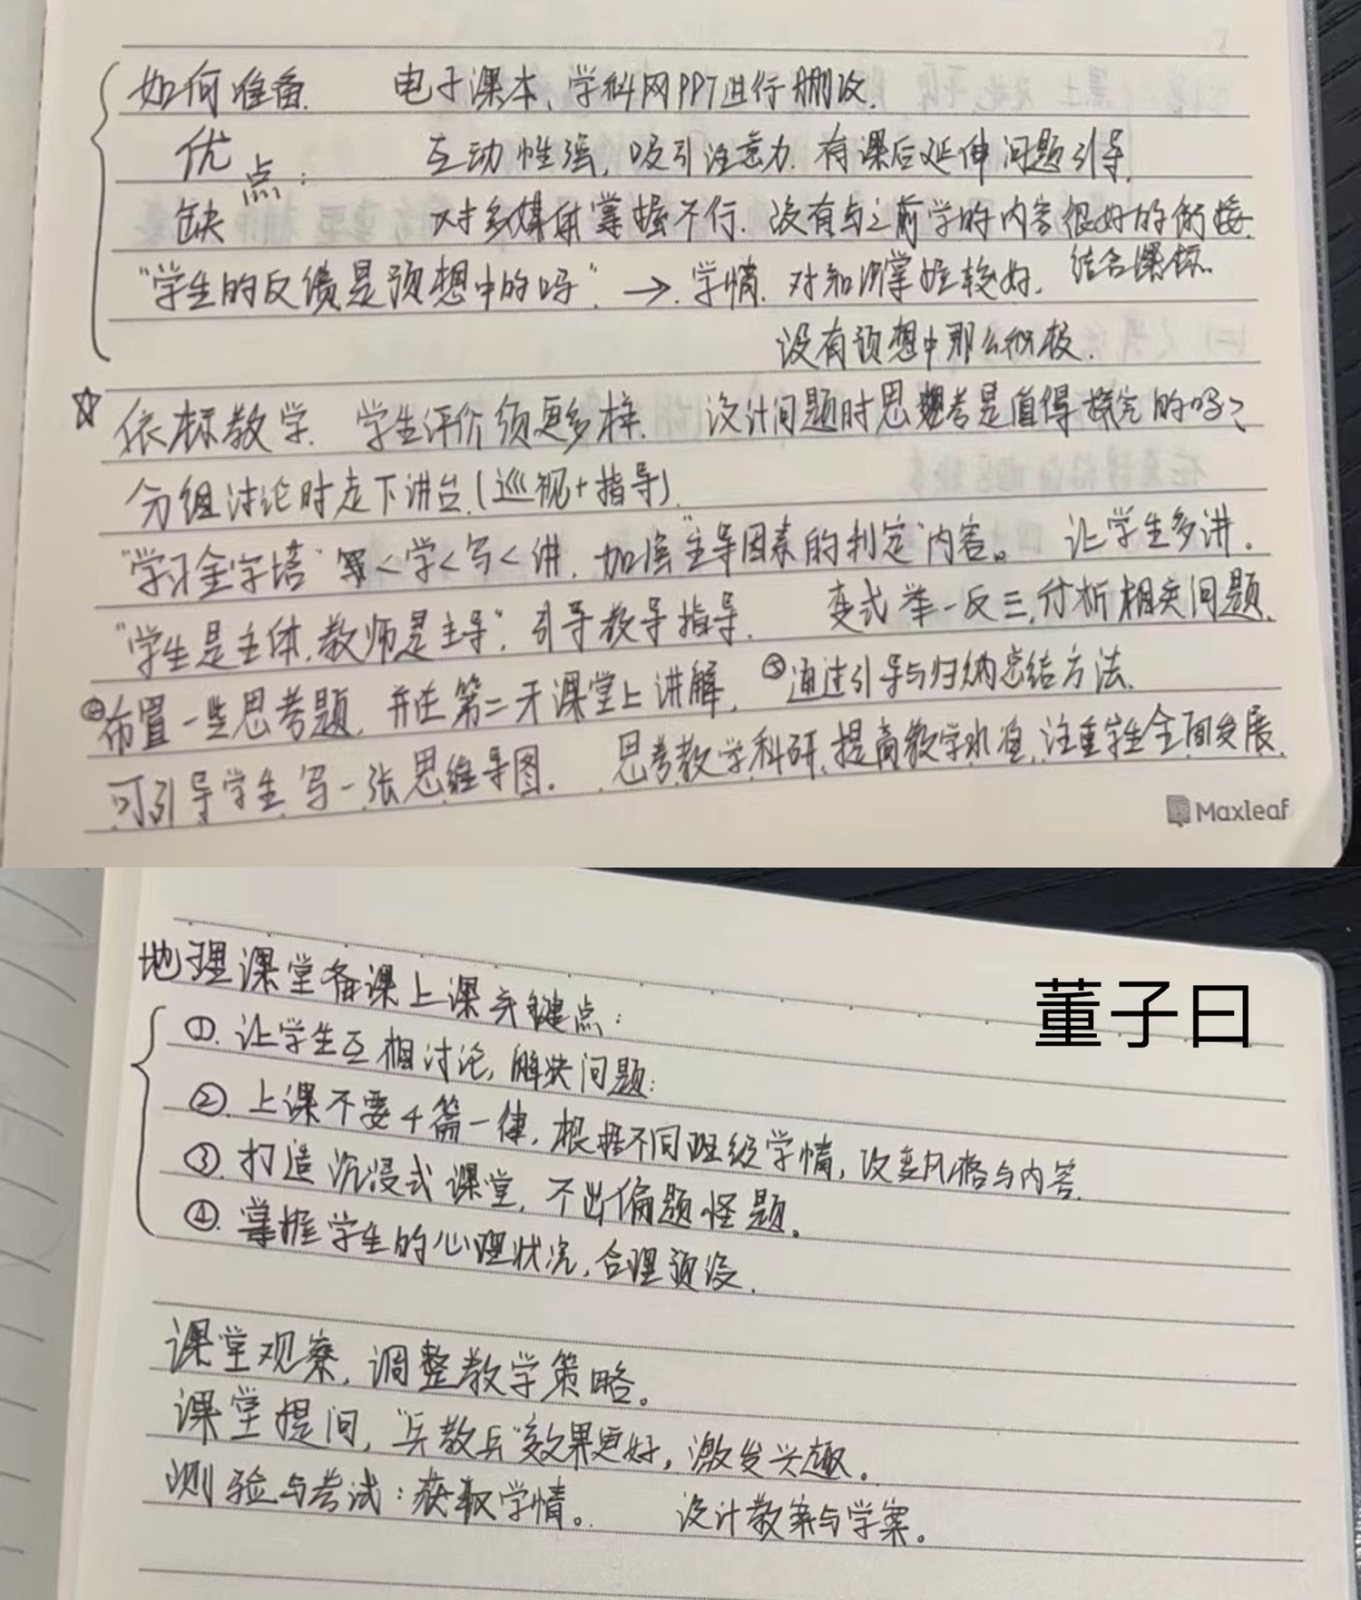 如何准备. 电子课本、学科网PPT进行删改.
优 互动性强, 吸引注意力. 有课后延伸问题引导.
点:
缺 对多媒体掌握不行. 没有与之前学的内容很好的衔接.
"学生的反馈是预想中的吗" → 学情. 对知识掌握较好. 结合课标.
没有预想中那么积极.
☆ 依标教学. 学生评价须更多样. 设计问题时思考是值得探究的吗?
分组讨论时走下讲台.(巡视+指导)
"学习金字塔" <学<写<讲. 加强"主导因素的判定"内容。 让学生多讲.
"学生是主体.教师是主导". 引导教导指导. 变式举一反三,分析相关问题.
布置一些思考题, 并在第二天课堂上讲解, 通过引导与归纳总结方法.
可引导学生写一张思维导图. 思考教学科研,提高教学水准,注重学生全面发展.
Maxleaf
地理课堂备课上课关键点:
董子曰
①. 让学生互相讨论, 解决问题;
②. 上课不要千篇一律, 根据不同班级学情, 改变风格与内容.
③. 打造沉浸式课堂, 不出偏题怪题。
④. 掌握学生的心理状况, 合理预设.
课堂观察, 调整教学策略。
课堂提问, "兵教兵"效果更好, 激发兴趣。
测验与考试: 获取学情。 设计教案与学案。